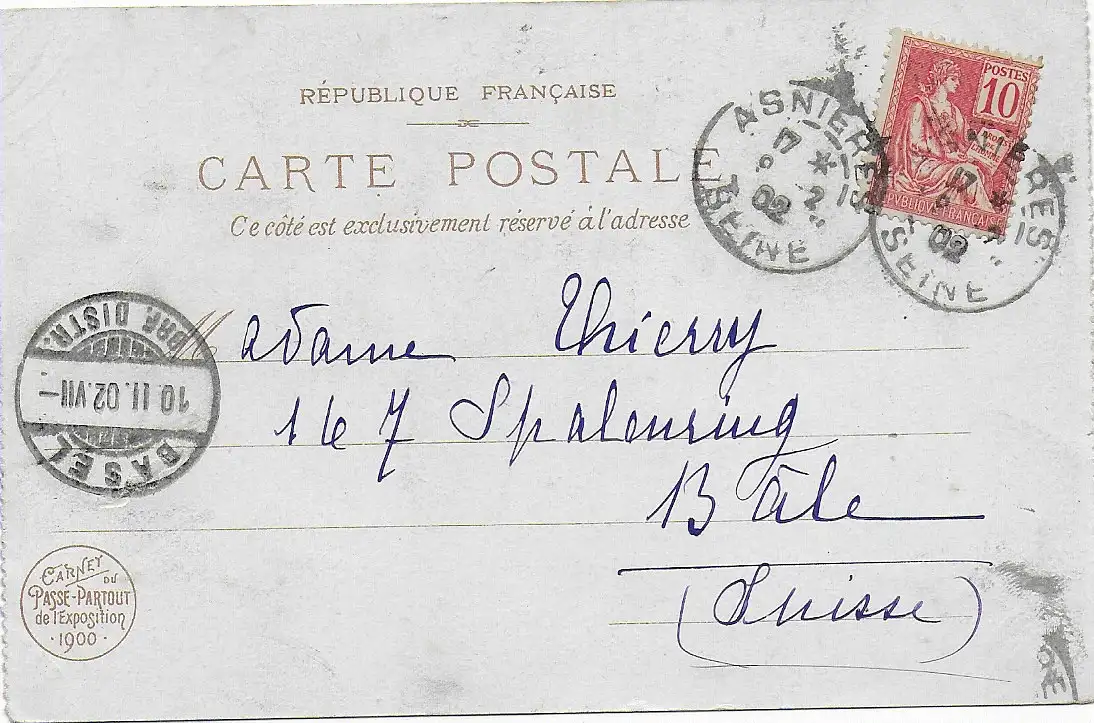 RÉPUBLIQUE FRANÇAISE
CARTE POSTALE
Ce côté est exclusivement réservé à l'adresse
POSTES
10
RÉPUBLIQUE FRANÇAISE
ASNIERES
17 *
9 2
02
SEINE
17 *
02
SEINE
BASEL
10.II.02.VII-
DISTR.
Madame Thierry
167 Spalenring
Bâle
(Suisse)
CARNET
DU
PASSE-PARTOUT
de l'Exposition
· 1900 ·